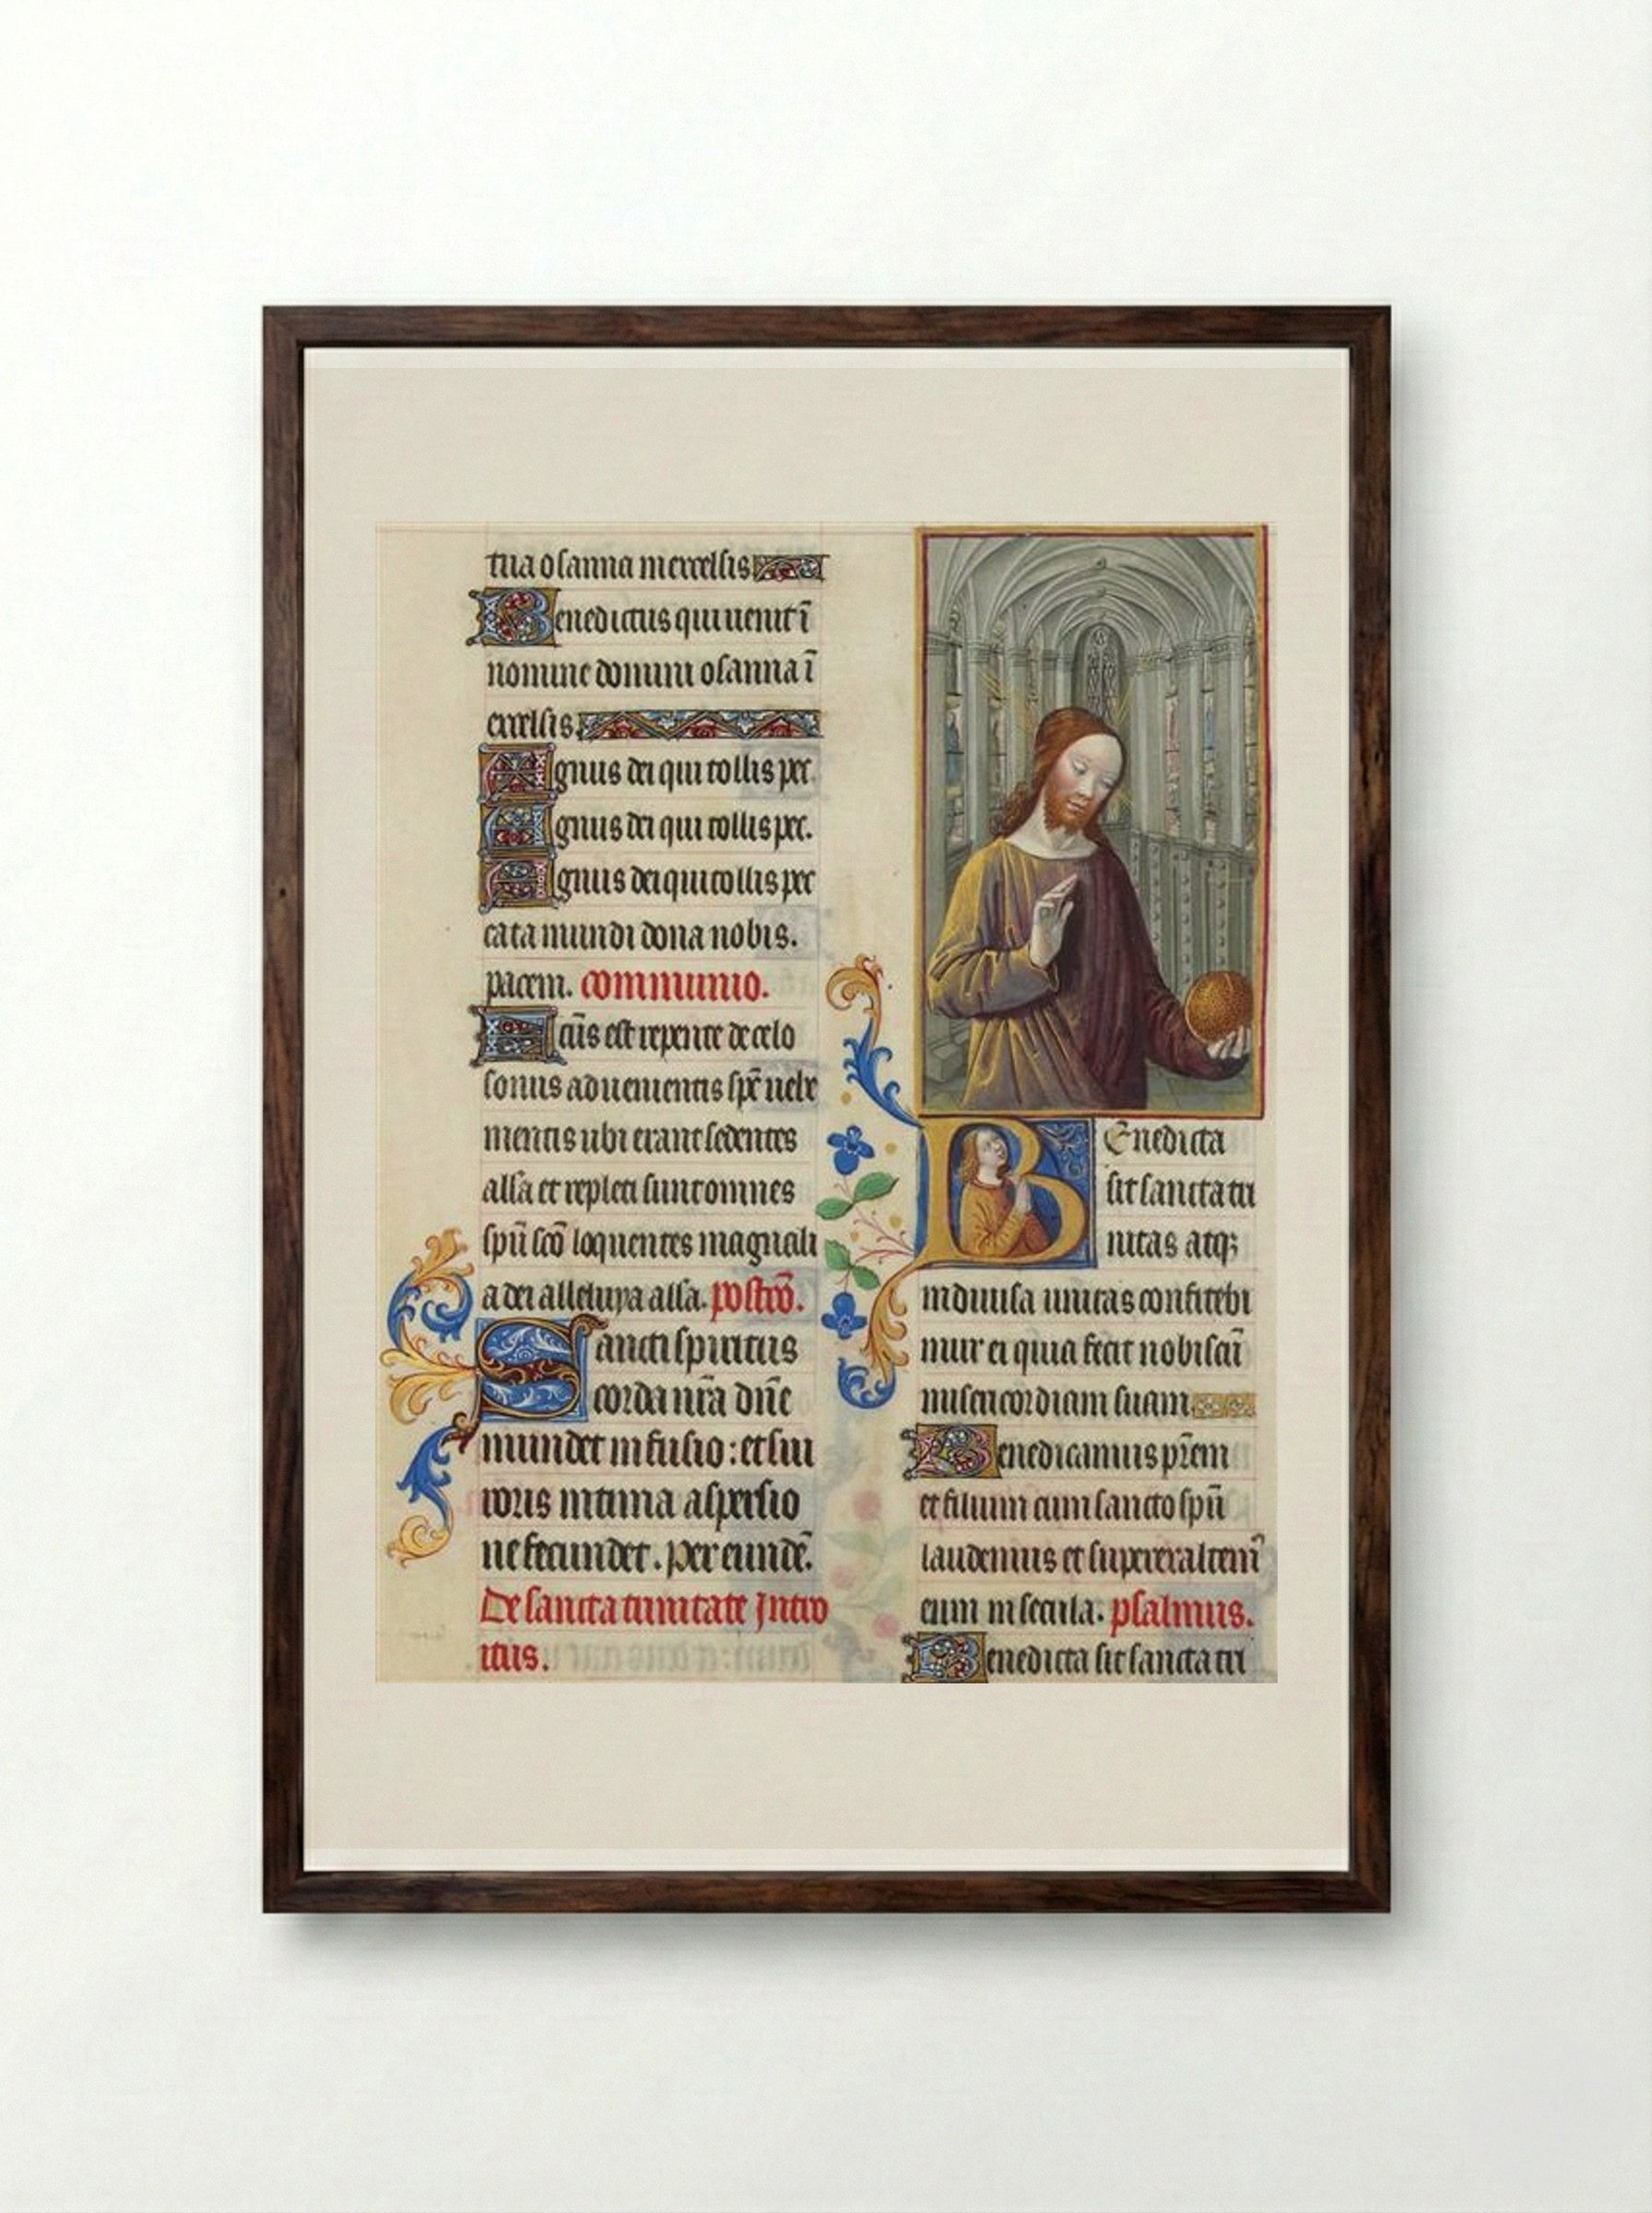 tua osanna in excelsis
Benedictus qui uenit ī
nomine domini osanna ī
excelsis.
Agnus dei qui tollis pec.
Agnus dei qui tollis pec.
Agnus dei qui tollis pec
cata mundi dona nobis.
pacem. communio.
Factūs est repente de celo
sonus aduenientis spē uehe
mentis ubi erant sedentes
alla et repleti sunt omnes
spū scō loquentes magnali
a dei alleluya alla. postcō.
Sancti spiritus
corda nr̄a dn̄e
mundet infusio : et sui
roris intima aspersio
ne fecundet. per eundē.
De sancta trinitate Intro
itus.
Benedicta
sit sancta tri
nitas atqꝫ
indiuisa unitas confitebi
mur ei quia fecit nobiscū
misericordiam suam
Benedicamus pr̄em
et filium cum sancto spū
laudemus et superexaltem̄
eum in secula. psalmus.
Benedicta sit sancta tri